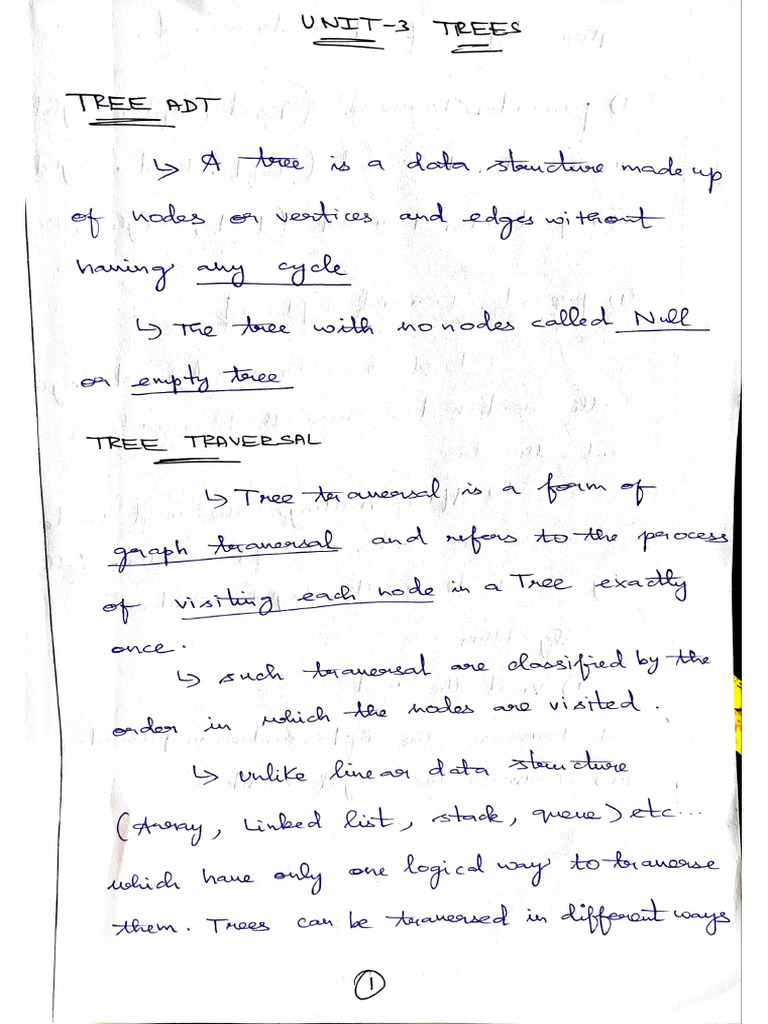 UNIT-3 TREES
TREE ADT
↳ A tree is a data structure made up
of nodes or vertices and edges without
having any cycle
↳ The tree with no nodes called Null
or empty tree
TREE TRAVERSAL
↳ Tree traversal is a form of
graph traversal and refers to the process
of visiting each node in a Tree exactly
once.
↳ such traversal are classified by the
order in which the nodes are visited.
↳ unlike linear data structure
(Array, Linked list, stack, queue) etc...
which have only one logical way to traverse
them. Trees can be traversed in different ways
1